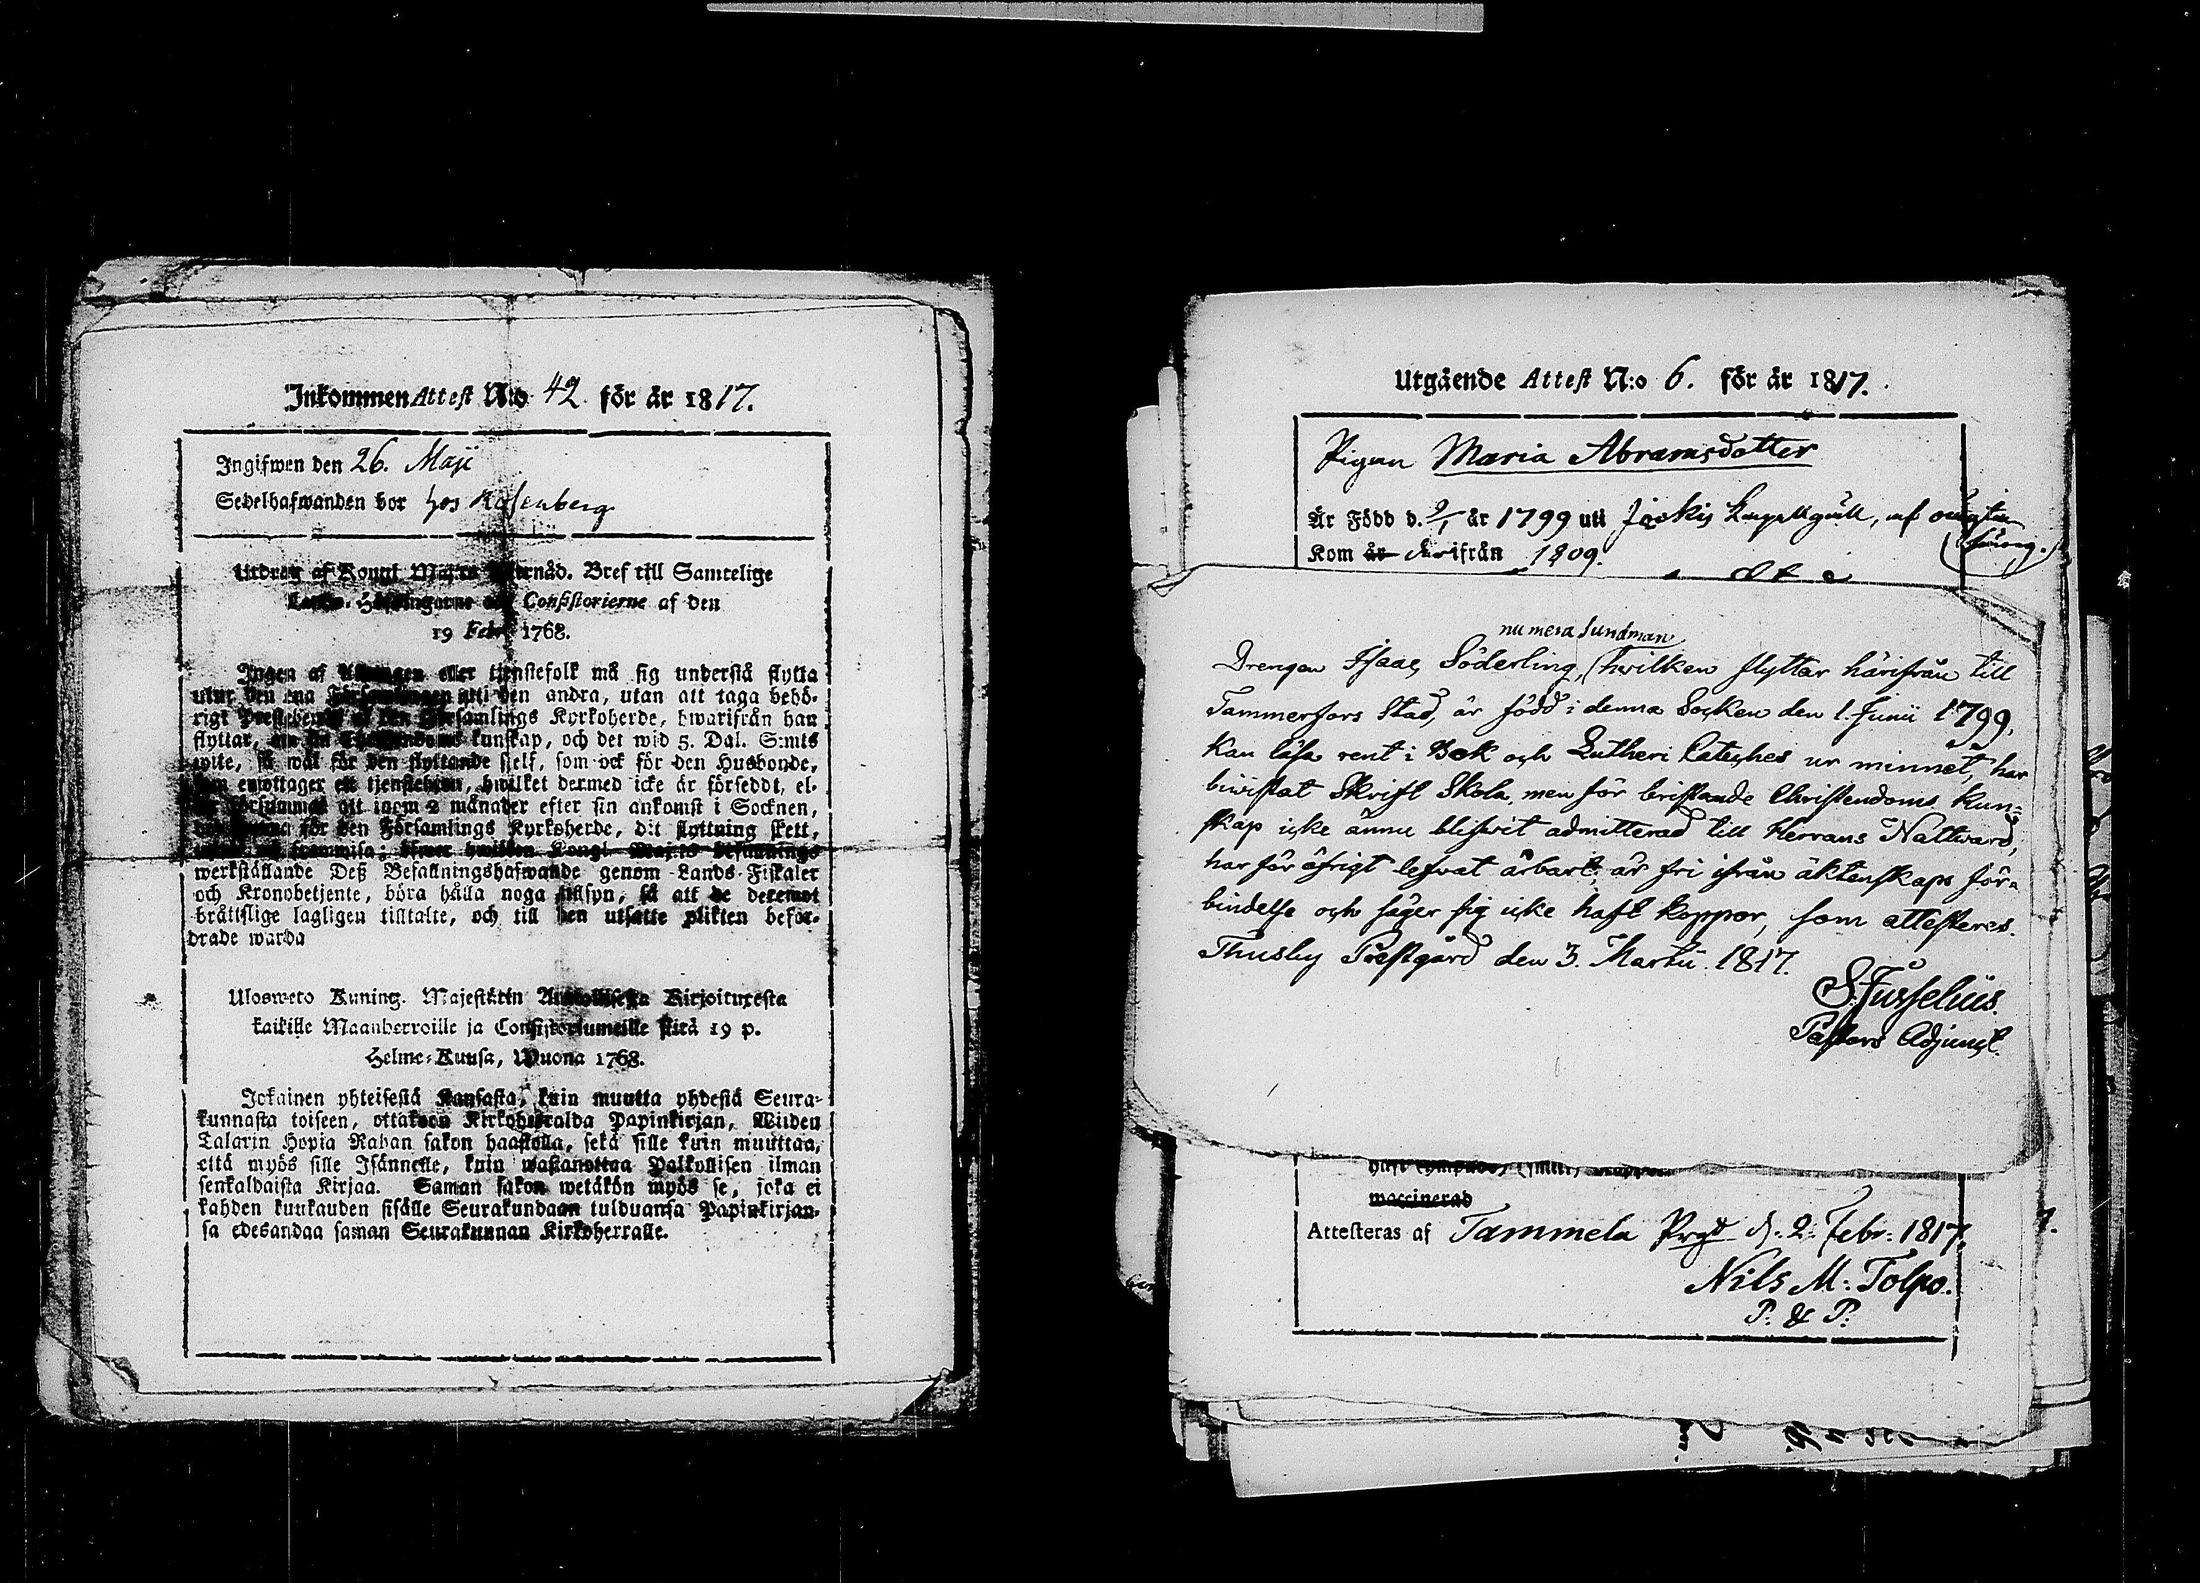 Inkommen Attest N:o 42 för år 1817.
Ingifwen den 26. Maji
Sedelhafwanden bor hos Rosenberg
Utdrag af Kongl Maj:ts Bref till Samtelige
Consistorierne af den
19 Febr 1768.
Ingen af eller tjenstefolk må sig understå flytta
utur den ena Församlingen uti den andra, utan att taga behö-
rigt af den Församlings Kyrkoherde, hwarifrån han
flyttar, kunskap, och det wid 5. Dal. S:mts
wite, så wäl för den flyttande sielf, som ock för den Husbonde,
som emottager ett tjenstehion, hwilket dermed icke är försedt, el-
ler försummat att inom 2 månader efter sin ankomst i Socknen,
för den Församlings Kyrkoherde, dit flyttning skett,
upwisa; öfwer hwilken Kongl Maj:ts
werkställande Deß Befallningshafwande genom Lands-Fiskaler
och Kronobetjente, böra hålla noga tillsyn, så att de deremot
bråttslige lagligen tilltalte, och till den utsatte plikten befor-
drade warda
Ulosweto Kuning. Majestätin Kirjoituxesta
kaikille Maanherroille ja Consistoriumeille siitä 19 p.
Helme-Kuusa, Wuona 1768.
Jokainen yhteisestä Kansasta, kuin muutta yhdestä Seura-
kunnasta toiseen, ottakoon Kirkoherralda Papinkirjan, Wiiden
Talarin Hopia Rahan sakon haastolla, sekä sille kuin muuttaa,
että myös sille Isännelle, kuin wastanottaa Palkollisen ilman
senkaldaista Kirjaa. Saman sakon wetäkön myös se, joka ei
kahden kuukauden sisälle Seurakundaan tulduansa Papinkirjan-
sa edesandaa saman Seurakunnan Kirkoherralle.
Utgående Attest N:o 6. för år 1817.
Pigan Maria Abramsdotter
Är Född d. 9/1 år 1799 uti Jockis Kapellgäll, af
Kom år derifrån 1809.
numera Sundman
Drengen Isaac Söderling, (hwilken flyttar härifrån till
Tammerfors Stad, är född i denna Socken den 1. Junii 1799,
kan läsa rent i Bok och Lutheri Cateches ur minnet, har
biwistat Skrift Skola, men för bristande Christendoms kun-
skap icke ännu blifwit admitterad till Herrans Nattward,
har för öfrigt lefwat ärbart, är fri ifrån äktenskaps för-
bindelse och säger sig icke haft koppor, som attesteres.
Thusby Prestgård den 3. Martii 1817.
S. Jusselius.
Pastors Adjunct.
waccinerad
Attesteras af Tammela Prgd d. 2. Febr: 1817.
Nils M: Tolpo.
P: & P: